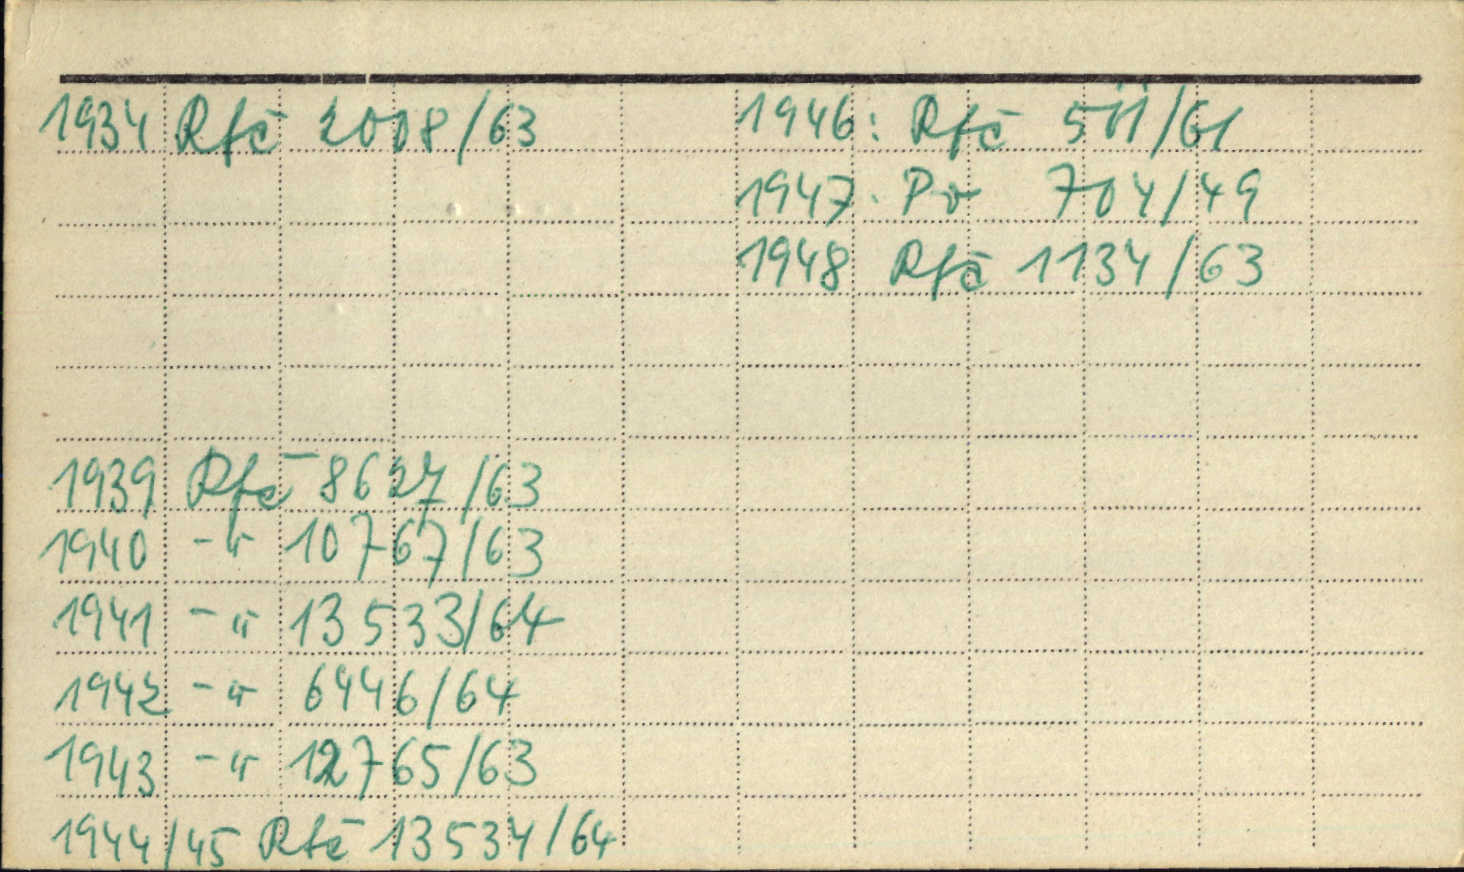 1934 Rfč 2008/63
1939 Rfč 8627/63
1940 -"- 10767/63
1941 -"- 13533/64
1942 -"- 6446/64
1943 -"- 12765/63
1944/45 Rfč 13534/64
1946: Rfč 511/61
1947. Pr 704/49
1948 Rfč 1134/63